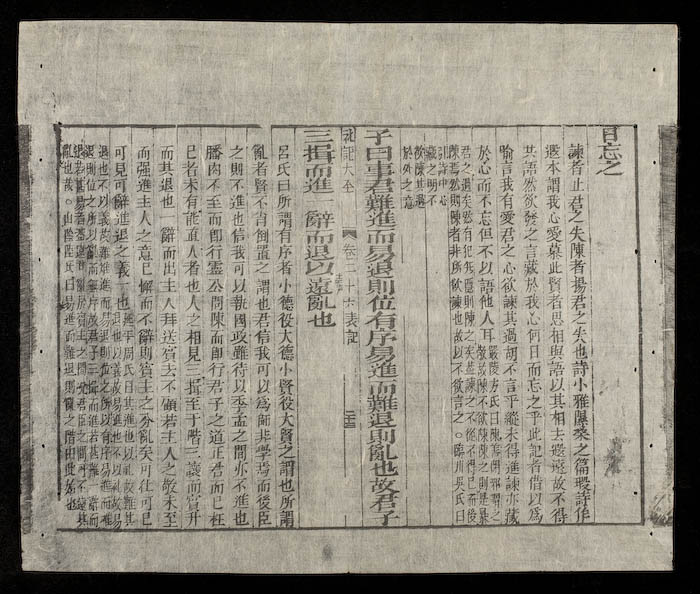 日忘之
諫者止君之失陳者揚君之失也詩小雅隰桑之篇瑕詩作
遐本謂我心愛慕此賢者思相與語以其相去遐遠故不得
共語然欲發之言藏於我心何日而忘之乎此記者借以為
喻言我有愛君之心欲諫其過胡不言乎縱未得進諫亦藏
於心而不忘但不以語他人耳
嚴陵方氏曰陳善閉邪謂之
臨川吳氏曰
於外之意
子曰事君難進而易退則位有序易進而難退則亂也故君子
三揖而進一辭而退以遠亂也
礼記大全 卷二十六 表記
呂氏曰所謂有序者小德役大德小賢役大賢之謂也所謂
亂者賢不肖倒置之謂也君信我可以為師非學焉而後臣
之則不進也信我可以執國政雖待以季孟之間亦不進也
膰肉不至而即行靈公問陳而即行君子之道正君而已枉
己者未有能直人者也人之相見三揖至于階三讓而賓升
而其退也一辭而出主人拜送賓去不顧若主人之敬未至
而强進主人之意已懈而不辭則賓主之分亂矣可仕可已
可見可辭進退之義一也
延平周氏曰其進也以禮故難其
退也以義故易
山陰陸氏曰易進而難退則